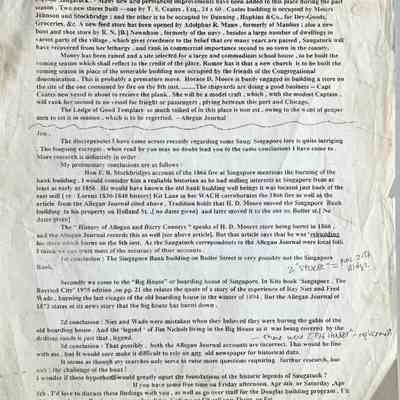 Saugatuck." Many new and permanent improvements have been added to this place during the past
season. Two new stores built - one by T. S. Coates, Esq., 24 x 60. Coates building of occupied by Moses
Johnson and Stockbridge; and the other is to be occupied by Dunning, Hopkins & Co. for Dry-Goods,
Groceries, &c. A new feed store has been opened by Adolphus R. Mann, formerly of Manlius; also a new
boot and shoe store by R. N. [B.] Newnham, formerly of the navy. besides a large number of dwellings in
various parts of the village, which give credence to the belief that ere many years are passed, Saugatuck will
have recovered from her lethargy, and rank in commercial importance second to no town in the county.
Money has been raised and a site selected for a large and commodious school house, to be built the
coming season which shall reflect to the credit of the place. Rumor has it that a new church is to be built the
coming season in place of the venerable building now occupied by the friends of the Congregational
denomination. This is probably a premature move. Horace D. Moore is busily engaged in building a store on
the site of the one consumed by fire on the 8th inst. ........The shipyards are doing a good business -- Capt
Coates new vessel is about to receive the plank. She will be a model craft, which, with the modest Captain,
will rank her second to no vessel for freight or passengers, plying between this port and Chicago.
The Lodge of Good Templars so much talked of in this place is non est, owing to the want of proper
men to set it in motion, which is to be regretted. -- Allegan Journal
Jen,
The discrepencies I have come across recently regarding some Saug/ Singapore lore is quite intriging
. The forgoing excerpts , when read by you may no doubt lead you to the same conclusions I have come to.
More research is definitely in order
My preliminary conclusions are as follows :
Hon F. B. Stockbridges account of the 1866 fire at Singapore mentions the burning of the
bank building. I would consider him a realiable historian as he had milling interests at Singapore from at
least as early as 1856. He would have known the old bank building well beings it was located just back of the
east mill [ re - Lorenz 1830-1848 history] Kit Lane in her WACH corroborates the 1866 fire as well as the
article from the Allegan Journal cited above. Tradition holds that H. D. Moore moved the Singapore Bank
building to his property on Holland St. .[ no dates given] and later moved it to the one on Butler st.[ No
dates given]
The " History of Allegan and Barry Countys " speaks of H. D. Moores store being burnt in 1866 ,
and the Allegan Journal records this as well [see above article]. But that article says that he was "rebuilding
his store which burns on the 8th inst. As the Saugatuck correspondents to the Allegan Journal were local folk
I think we can trust most of the accuracy of their accounts.
1st conclusion : The Singapore Bank building on Butler Street is very possibly not the Singapore
Bank.
Secondly we come to the "Big House" or boarding house of Singapore. In Kits book 'Singapore , The
Buryied City' 1975 edition ,on pg. 21 she relates the quote of a story of the experience of Ray Nies and Fred
Wade , burning the last visages of the old boarding house in the winter of 1894 . But the Allegan Journal of
1873 states at its news story that the big house has burnt down .
2d conclusion : Nies and Wade were mistaken when they believed they were buring the gable of the
old boarding house. And the 'legend ' of Jim Nichols living in the Big House as it was being covered by the
drifting sands is just that , legend.
3d conclusion : That possibly , both the Allegan Journal accounts are incorrect. That would be fine
with me , but It would sure make it difficult to rely on any old newspaper for historical data.
It seems as though my searches only serve to raise more questions requiring further research, but
ain't the challenge of the hunt !
I wonder if these hypothesis would greatly upset the foundations of the historic legends of Saugatuck ?
If you have some free time on Friday afternoon, Apr 4th or Saturday ,Apr
5th . I'd love to discuss these findings with you , as well as go over stuff for the Douglas building program . I'll